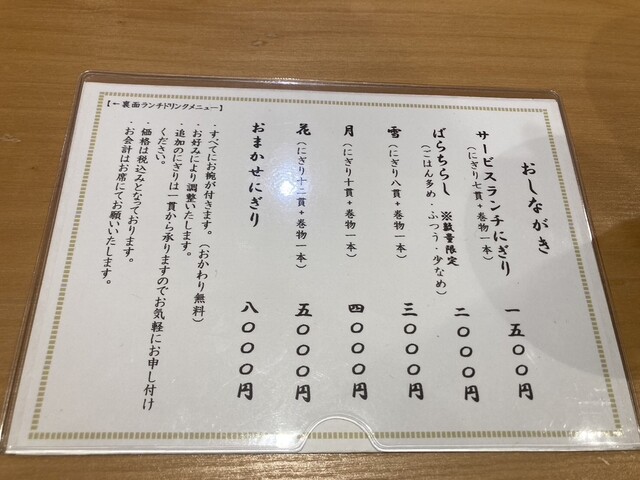 おしながき
サービスランチにぎり 一五〇〇円
(にぎり七貫+巻物一本)
ばらちらし ※数量限定 二〇〇〇円
(ごはん多め・ふつう・少なめ)
雪 (にぎり八貫+巻物一本) 三〇〇〇円
月 (にぎり十貫+巻物一本) 四〇〇〇円
花 (にぎり十二貫+巻物一本) 五〇〇〇円
おまかせにぎり 八〇〇〇円
・すべてにお椀が付きます。(おかわり無料)
・お好みにより調整いたします。
・追加のにぎりは一貫から承りますのでお気軽にお申し付け
ください。
・価格は税込みとなっております。
・お会計はお席にてお願いいたします。
【←裏面ランチドリンクメニュー】